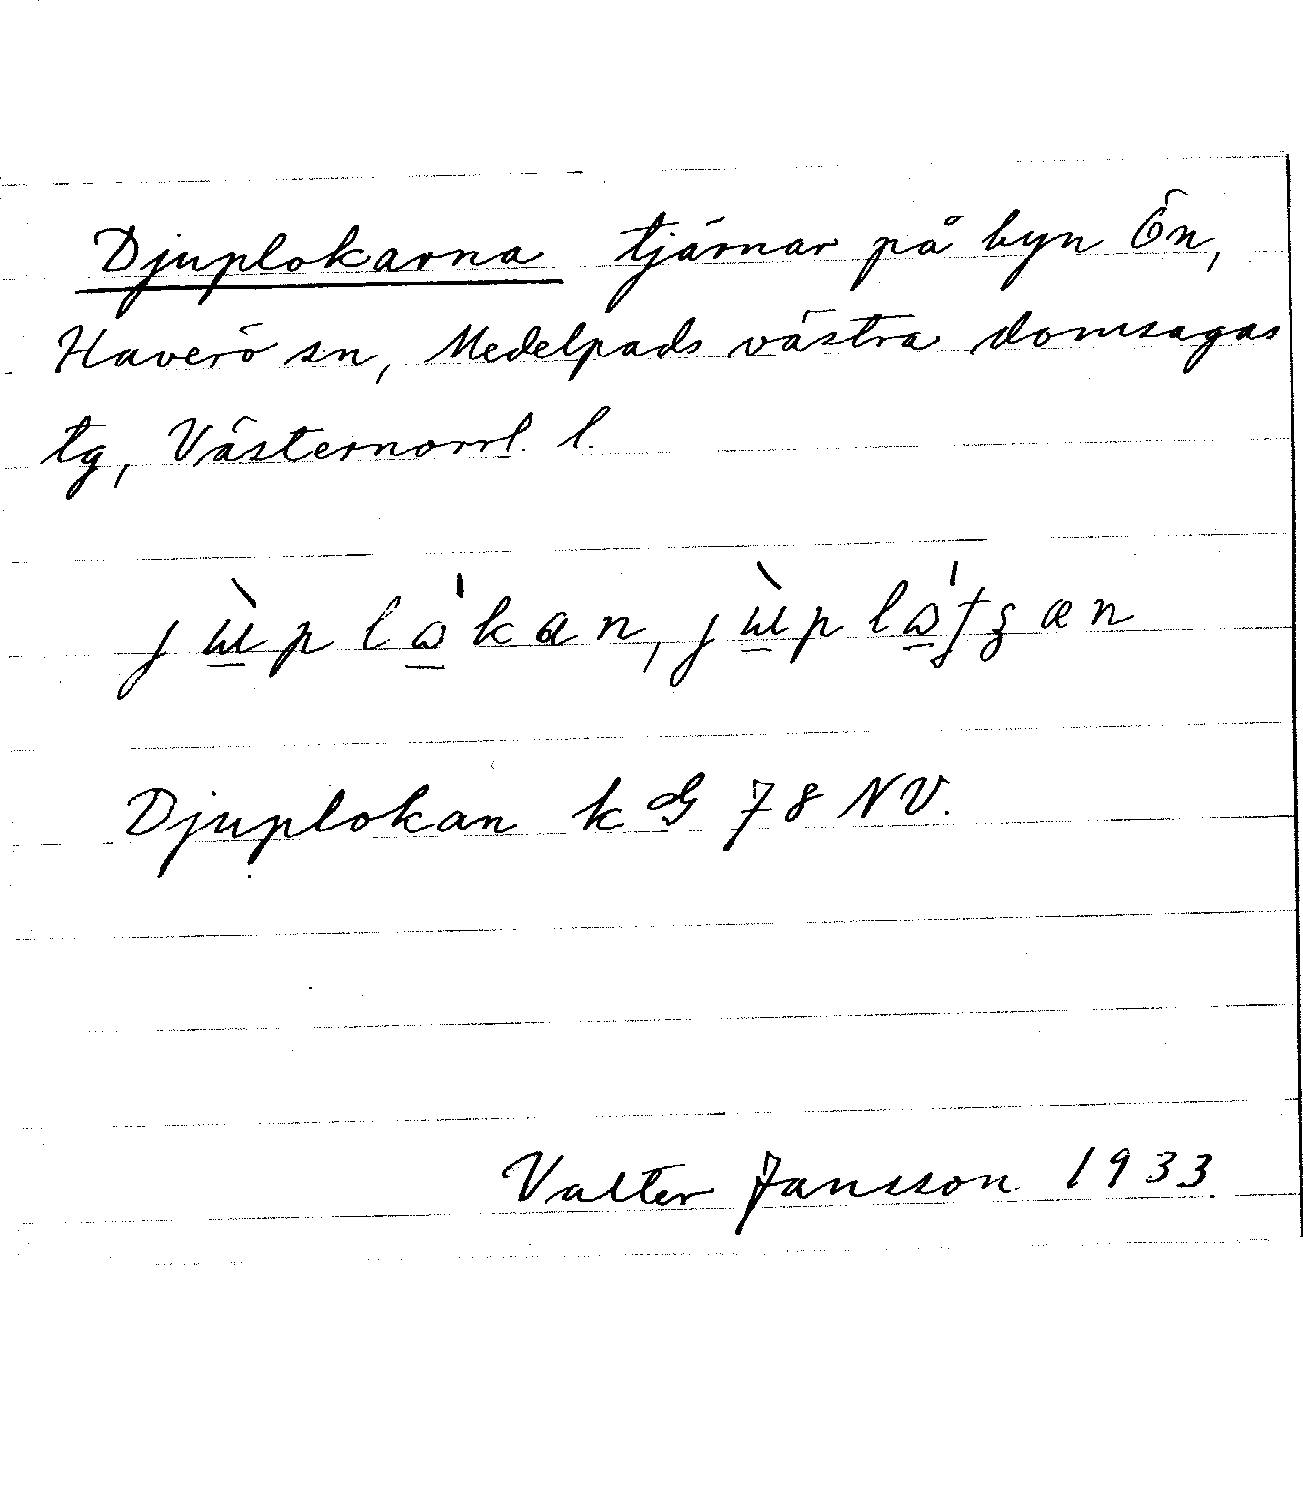 Djuplokarna tjärnar på byn Ön,
Haverö sn, Medelpads västra domsagas
tg, Västernorrl. l.
Djuplokan k 78 NV.
Valter Jansson 1933.